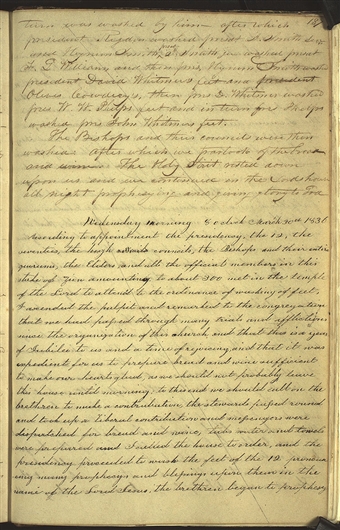 turn was washed by him after which
president S. Rigdon washed president J. Smith Junr
and Hyrum Smith, &
F. G. Williams, and then pres. Hyrum Smith washed
president David Whitmer's feet and president
Oliver Cowdery's, then pres D. Whitmer washed
pres W. W. Phelps feet and in turn pres Phelps
washed pres John Whitmers feet.
The Bishops and their councils were then
washed: after which we partook of the bread
and wine. The Holy S rested down
upon us and we continued in the Lords house
all night prophesying and giving glory to God
Wednesday morning 8 o clock March 30th 1836
According to appointment the presidency, the 12, the
seventies, the high councils, the Bishops and their entire
quorums, the Elders, and all the official members in this
stake of Zion amounting to about 300 met in the temple
of the Lord to attend to the ordinance of washing of feet,
I ascended the pulpit and remarked to the congregation
that we had passed through many trials and afflictions
since the organization of this church and that this is a year
of Jubilee to us and a time of rejoicing, and that it was
expedient for us to prepare bread and wine sufficient
to make our hearts glad, as we should not probably leave
this house until morning; to this end we should call on the
brethren to make a contribution, the stewards passed round
and took up a liberal contribution and messengers were
despatched for bread and wine; tubs water and towels
were prepared and I called the house to order, and the
presidency proceeded to wash the feet of the 12 pronoun
cing many prophecys and blessings upon them in the
name of the Lord Jesus, the brethren began to prophesy